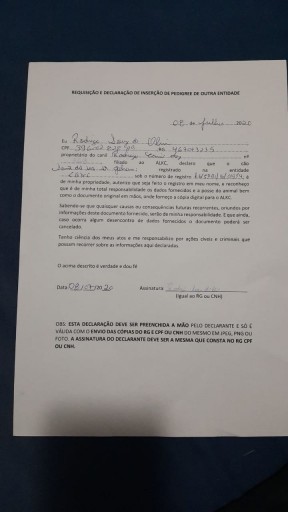 REQUISIÇÃO E DECLARAÇÃO DE INSERÇÃO DE PEDIGREE DE OUTRA ENTIDADE
08 de julho
Eu Rodrigo
CPF RG
proprietário do canil nº
filiado ao ALKC, declaro que o cão
registrado na entidade
sob o número de registro é
de minha propriedade, autorizo que seja feito o registro em meu nome, e reconheço
que é de minha total responsabilidade os dados fornecidos e a posse do animal bem
como o documento original em mãos, onde forneço a cópia digital para o ALKC.
Sabendo-se que quaisquer causas ou consequências futuras recorrentes, oriundos por
informações deste documento fornecido, serão de minha responsabilidade. E que ainda,
caso ocorra algum desencontro de dados fornecidos o documento poderá ser
cancelado.
Tenho ciência dos meus atos e me responsabilizo por ações cíveis e criminais que
possam recorrer sobre as informações aqui declaradas.
O acima descrito é verdade e dou fé
Data Assinatura
(Igual ao RG ou CNH)
OBS: ESTA DECLARAÇÃO DEVE SER PREENCHIDA A MÃO PELO DECLARANTE E SÓ É
VÁLIDA COM O ENVIO DAS CÓPIAS DO RG E CPF OU CNH DO MESMO EM JPEG, PNG OU
FOTO. A ASSINATURA DO DECLARANTE DEVE SER A MESMA QUE CONSTA NO RG CPF
OU CNH.